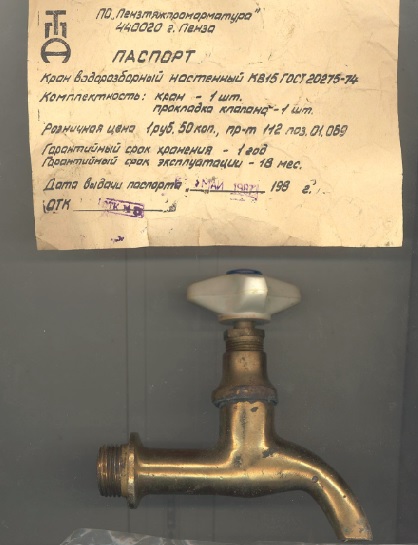 ПО „Пензтяжпромарматура"
440020 г. Пенза
ПАСПОРТ
Кран водоразборный настенный КВ15 ГОСТ 20275-74
Комплектность: кран - 1 шт.
прокладка клапана - 1 шт.
Розничная цена 1руб. 50 коп., пр-т 112 поз. 01.069
Гарантийный срок хранения - 1 год
Гарантийный срок эксплуатации - 18 мес.
Дата выдачи паспорта МАЙ 198 г.
ОТК